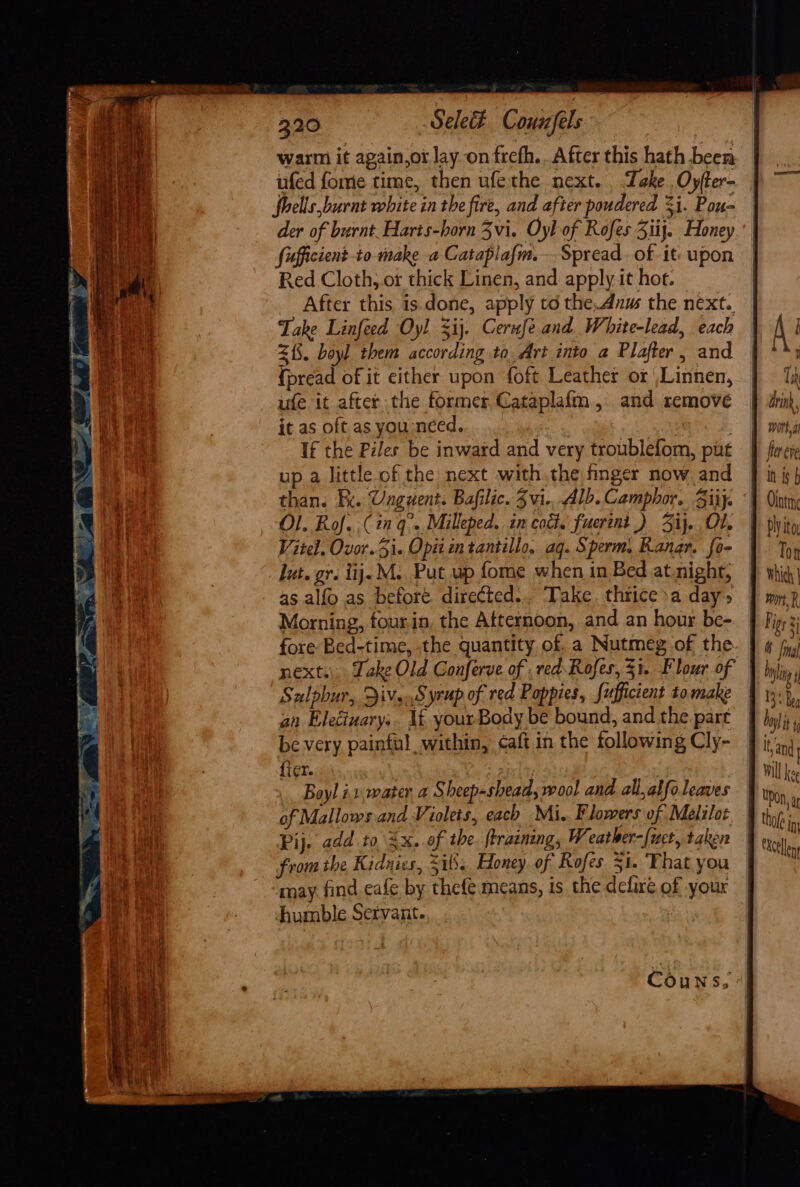 320 Select Counſels
warm it again, or lay on freſh. After this hath been
uſed ſome time, then uſe the next. Take Oyſter-
ſhells, burnt white in the fire, and after poudered ʒi. Pou-
der of burnt Harts-horn ʒvi. Oyl of Roſes ℥iij. Honey
ſufficient to make a Cataplaſm. Spread of it upon
Red Cloth, or thick Linen, and apply it hot.
After this is done, apply to the Anus the next.
Take Linſeed Oyl ℥ij. Ceruſe and White-lead, each
℥ß. boyl them according to Art into a Plaſter, and
ſpread of it either upon ſoft Leather or Linnen,
uſe it after the former Cataplaſm, and remove
it as oft as you need.
If the Piles be inward and very troubleſom, put
up a little of the next with the finger now and
than. ℞. Unguent. Baſilic. ʒvi. Alb. Camphor. ℥iij.
Ol. Roſ. (in q°. Milleped. in cocti. fuerint) ℥ij. Ol.
Vitel. Ovor. ℥i. Opii in tantillo. aq. Sperm. Ranar. ſo-
lut. gr. lij. M. Put up ſome when in Bed at night,
as alſo as before directed. Take thrice a day,
Morning, four in the Afternoon, and an hour be-
fore Bed-time, the quantity of a Nutmeg of the
next. Take Old Conſerve of red Roſes, ℥i. Flour of
Sulphur, ℈iv. Syrup of red Poppies, ſufficient to make
an Electuary. If your Body be bound, and the part
be very painful within, caſt in the following Cly-
ſter.
Boyl in water a Sheep-shead, wool and all, alſo leaves
of Mallows and Violets, each Mi. Flowers of Melilot
Pij. add to ℥x. of the ſtraining, Weather-ſuet, taken
from the Kidnies, ℥iß. Honey of Roſes ℥i. That you
may find eaſe by theſe means, is the deſire of your
humble Servant.
Couns.